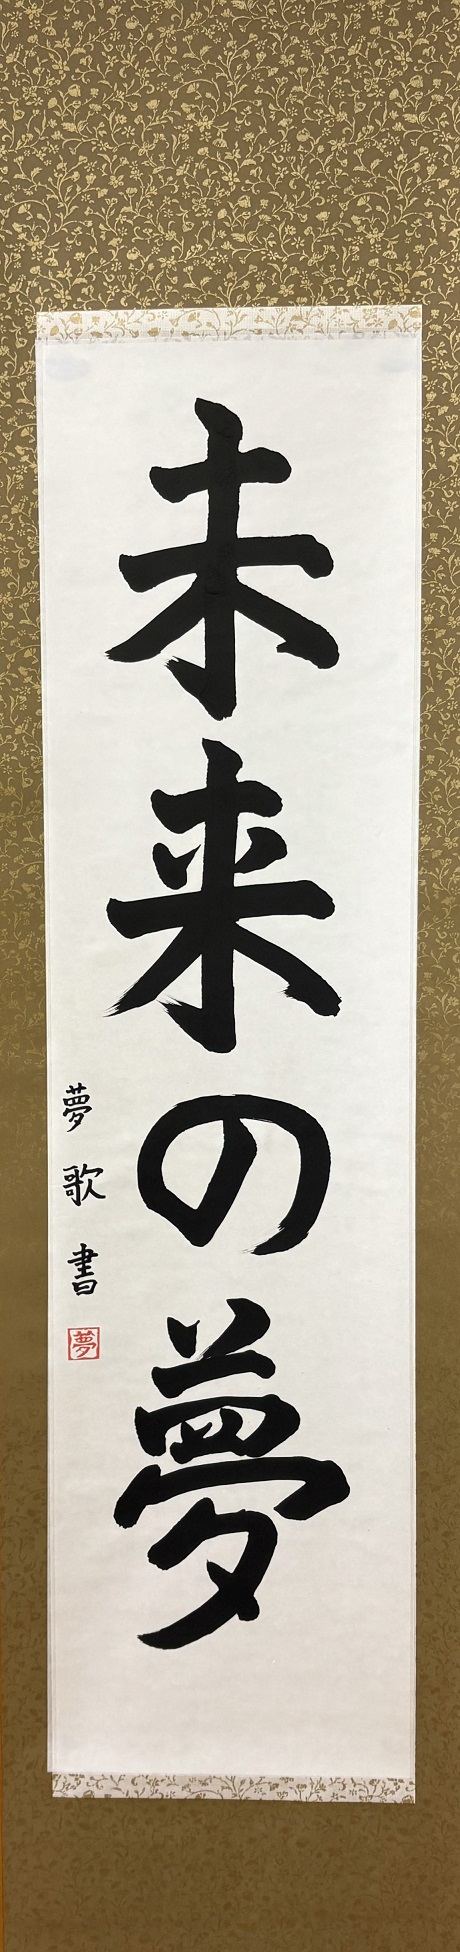 未来の夢
夢歌書
夢